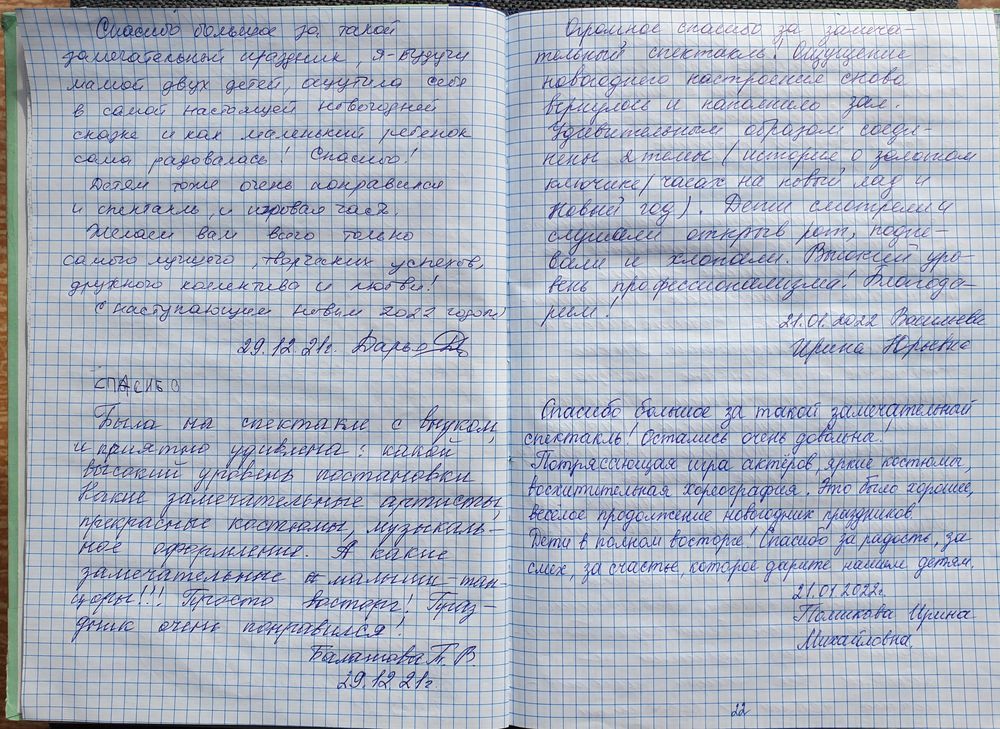 Спасибо большое за такой
замечательный праздник, Я-будучи
мамой двух детей, ощутила себя
в самой настоящей новогодней
сказке и как маленький ребенок
сама радовалась! Спасибо!
Детям тоже очень понравился
и спектакль, и игровая часть.
Желаем вам всего только
самого лучшего, творческих успехов,
дружного коллектива и любви!
С наступающим новым 2022 годом)
29.12.21г. Дарья
СПАСИБО
Была на спектакле с внуком
и приятно удивлена: какой
высокий уровень постановки
Какие замечательные артисты,
прекрасные костюмы, музыкаль-
ное оформление. А какие
замечательные малыши-тан-
цоры!!! Просто восторг! Праз-
дник очень понравился!
Балашова Т. В
29.12.21г.
Огромное спасибо за замеча-
тельный спектакль! Ощущение
новогоднего настроения снова
вернулось и наполнило зал.
Удивительным образом соеди-
нены темы (история о золотом
ключике/часах на новый лад и
Новый год). Дети смотрели и
слушали открыв рот, подпе-
вали и хлопали. Высокий уро-
вень профессионализма! Благода-
рим!
21.01.2022
Ирина Юрьевна
Спасибо большое за такой замечательной
спектакль! Остались очень довольна!
Потрясающая игра актеров, яркие костюмы,
восхитительная хореография. Это было хорошее,
веселое продолжение новогодних праздников
Дети в полном восторге! Спасибо за радость, за
смех, за счастье, которое дарите нашим детям.
21.01.2022г.
Полякова Ирина
Михайловна.
22